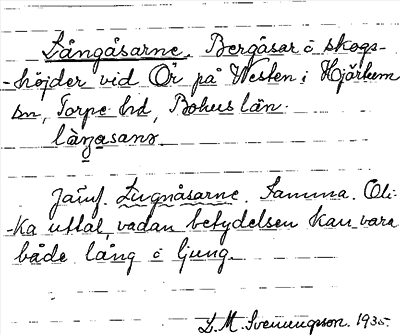 Långåsarne. Bergåsar o skogs-
-höjder vid Ör på Westen i Hjärtum
sn, Torpe hd, Bohus län.
làŋasanə
Jämf. Lugnåsarne. Samma. Oli-
-ka uttal, vadan betydelsen kan vara
både lång o ljung.
L. M. Svenungsson. 1935.